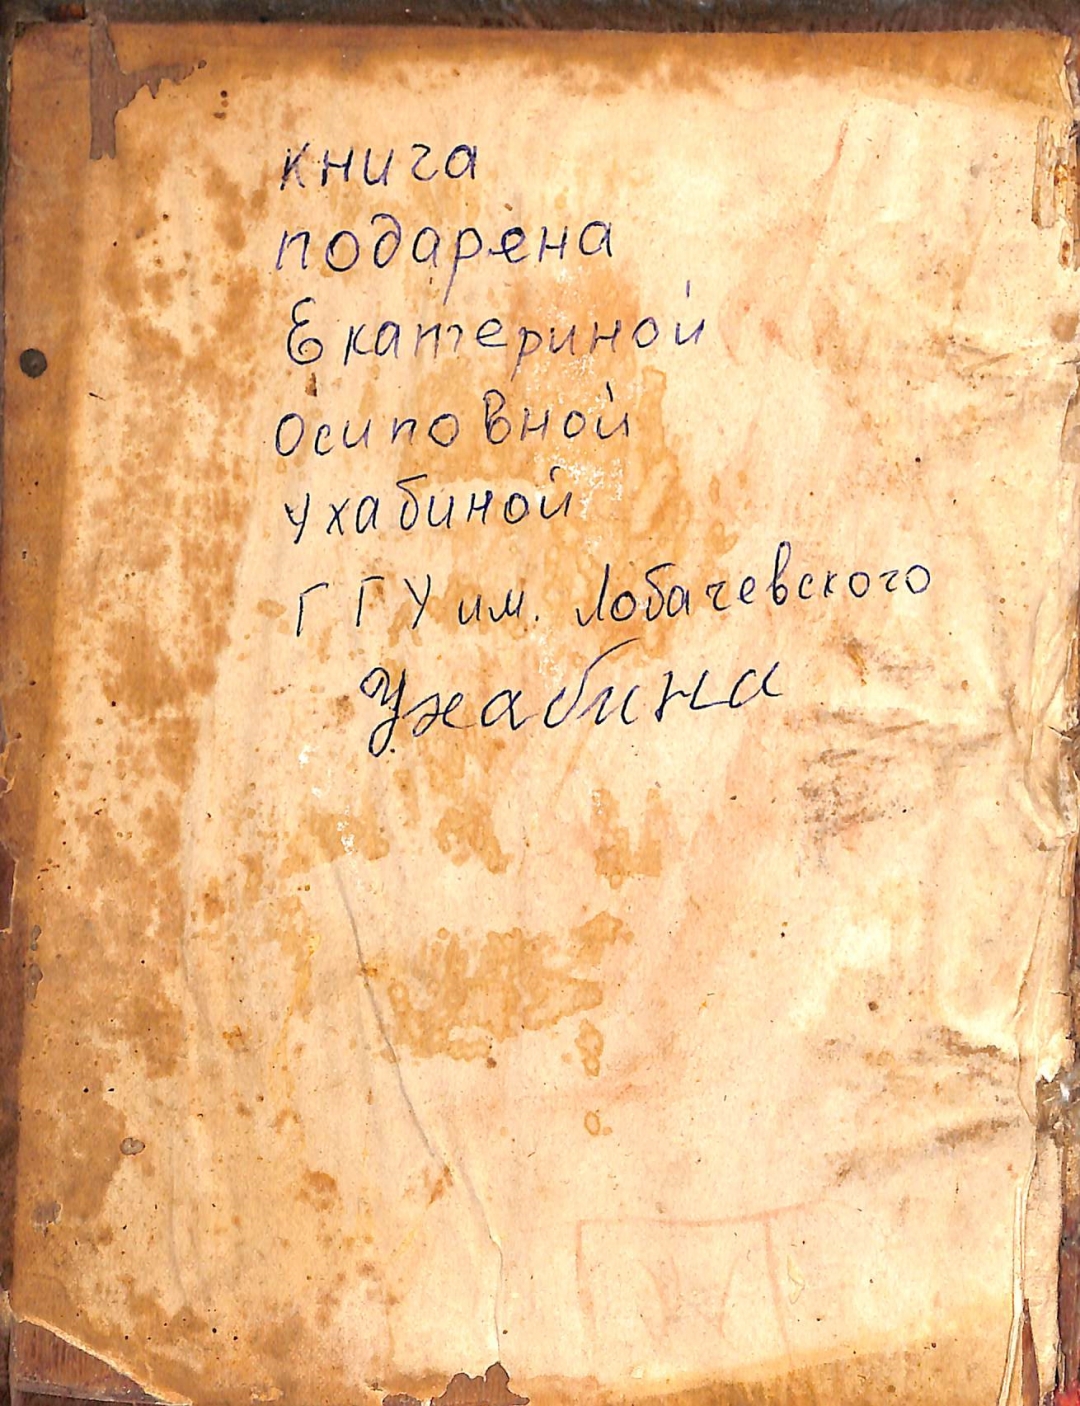 книга
подарена
Екатериной
Осиповной
Ухабиной
ГГУ им. Лобачевского
Ухабина